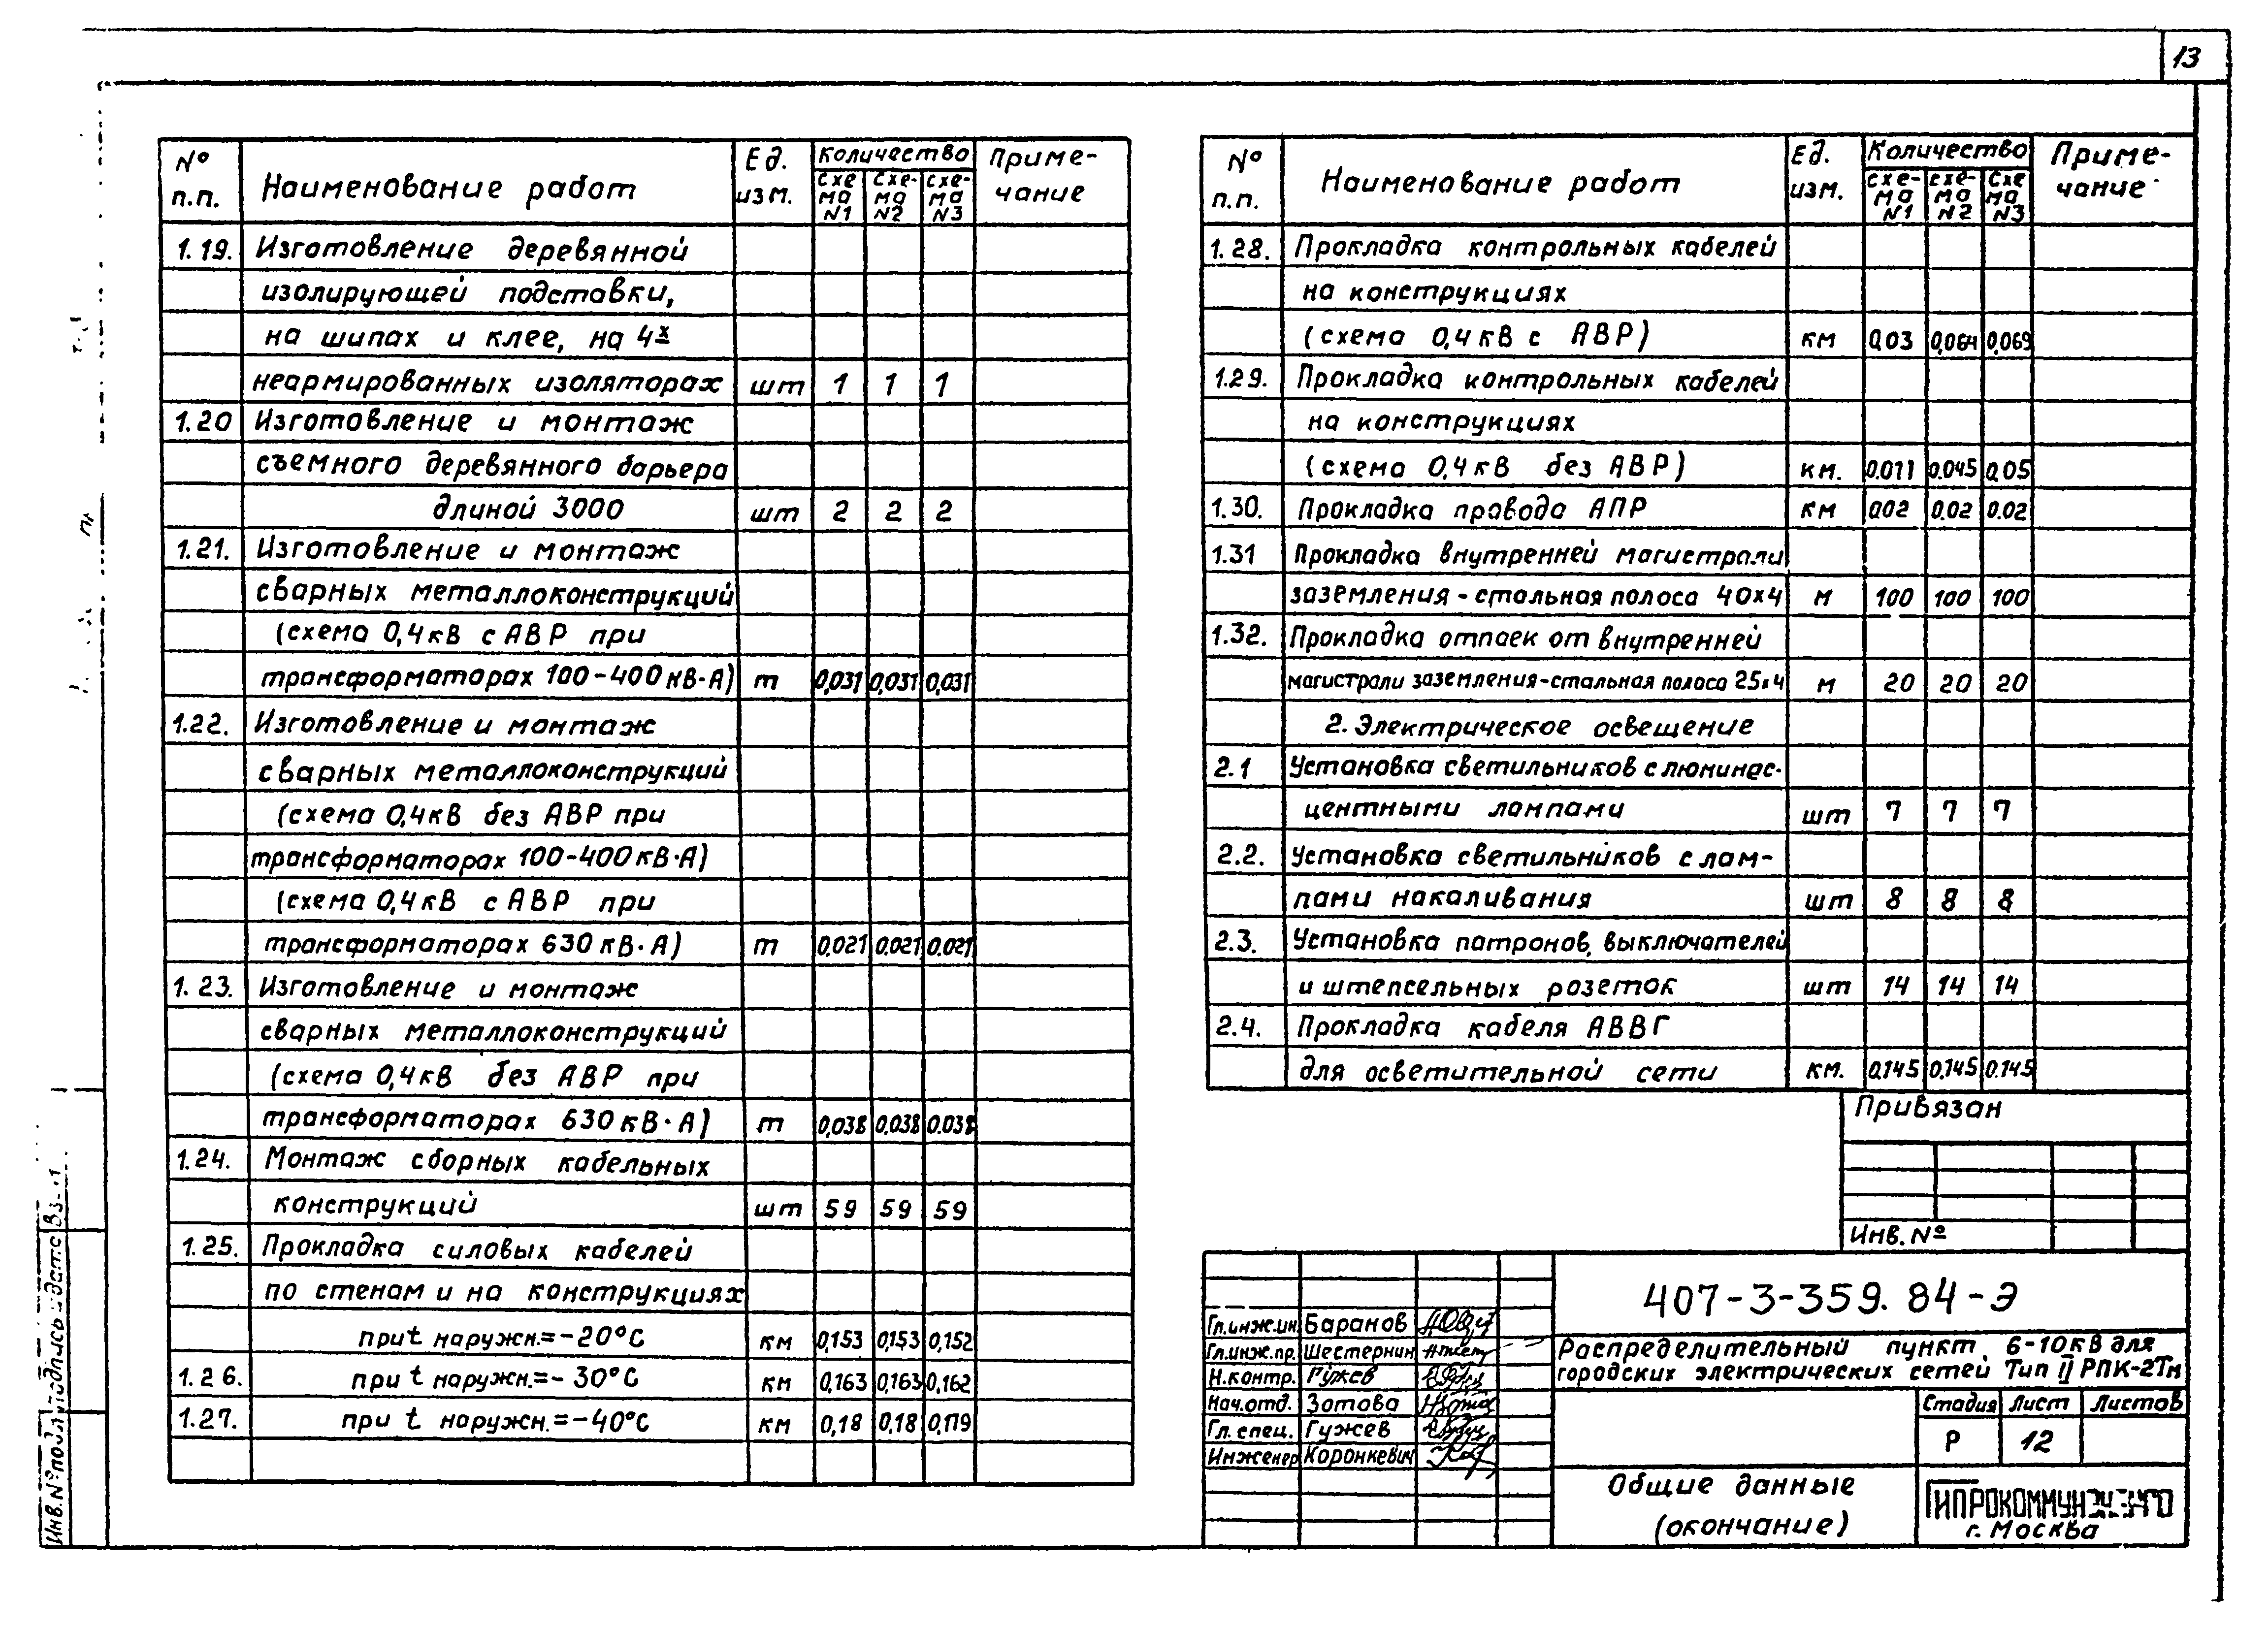 13
№ п.п. Наименование работ Ед. изм. Количество Приме-чание
схе ма N1 схе-ма N2 схе-ма N3
1.19. Изготовление деревянной
изолирующей подставки,
на шипах и клее, на 4х
неармированных изоляторах шт 1 1 1
1.20 Изготовление и монтаж
съемного деревянного барьера
длиной 3000 шт 2 2 2
1.21. Изготовление и монтаж
сварных металлоконструкций
(схема 0,4кВ с АВР при
трансформаторах 100-400кВ·А) т 0,031 0,031 0,031
1.22. Изготовление и монтаж
сварных металлоконструкций
(схема 0,4кВ без АВР при
трансформаторах 100-400кВ·А)
(схема 0,4кВ с АВР при
трансформаторах 630кВ·А) т 0,021 0,021 0,021
1.23. Изготовление и монтаж
сварных металлоконструкций
(схема 0,4кВ без АВР при
трансформаторах 630кВ·А) т 0,038 0,038 0.038
1.24. Монтаж сборных кабельных
конструкций шт 59 59 59
1.25. Прокладка силовых кабелей
по стенам и на конструкциях
при t наружн.=-20°С км 0,153 0,153 0,152
1.26. при t наружн.=-30°С км 0,163 0,163 0,162
1.27. при t наружн.=-40°С км 0,18 0,18 0,179
№ п.п. Наименование работ Ед. изм. Количество Приме-чание
схе-ма N1 схе-ма N2 схе ма N3
1.28. Прокладка контрольных кабелей
на конструкциях
(схема 0,4кВ с АВР) км 0,03 0,064 0,069
1.29. Прокладка контрольных кабелей
на конструкциях
(схема 0,4кВ без АВР) км. 0.011 0.045 0,05
1.30. Прокладка провода АПР км 0.02 0.02 0.02
1.31 Прокладка внутренней магистрали
заземления-стальная полоса 40х4 м 100 100 100
1.32. Прокладка отпаек от внутренней
магистрали заземления-стальная полоса 25х4 м 20 20 20
2. Электрическое освещение
2.1 Установка светильников с люминес-
центными лампами шт 7 7 7
2.2. Установка светильников с лам-
пами накаливания шт 8 8 8
2.3. Установка патронов, выключателей
и штепсельных розеток шт 14 14 14
2.4. Прокладка кабеля АВВГ
для осветительной сети км. 0.145 0.145 0.145
Привязан
Инв.№
407-3-359.84-Э
Гл.инж.ин. Баранов
Гл.инж.пр. Шестернин
Н.контр. Гужев
Нач.отд. Зотова
Гл.спец. Гужев
Инженер Коронкевич
Распределительный пункт 6-10кВ для
городских электрических сетей Тип II РПК-2Тм
Стадия Лист Листов
Р 12
Общие данные
(окончание)
ГИПРОКОММУНЭНЕРГО
г. Москва
Инв.№подл. Подпись и дата